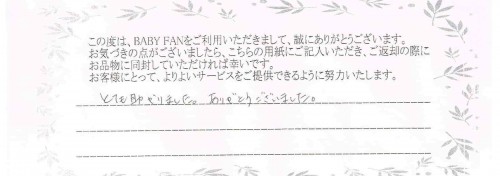 この度は、BABY FANをご利用いただきまして、誠にありがとうございます。
お気づきの点がございましたら、こちらの用紙にご記入いただき、ご返却の際に
お品物に同封していただければ幸いです。
お客様にとって、よりよいサービスをご提供できるように努力いたします。
とても助かりました。ありがとうございました。